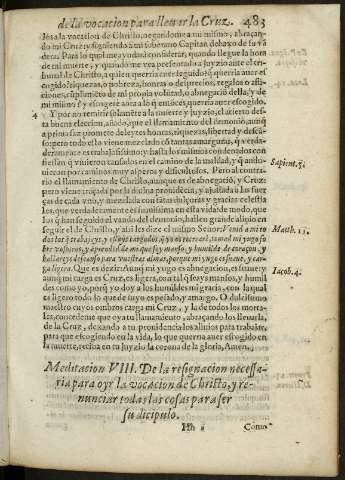 de la vocacion para lleuar la Cruz. 483
sesa la vocacion de Christo, negandome a mi mismo, abraçan-
do mi Cruz y siguiendo a tan soberano Capitan debaxo de su vã
dera. Para lo qual me ayudará considerar, quando llegue la hora
de mi muerte, y quando me vea presentado a juyzio ante el tri-
bunal de Christo, a quien querria auer seguido: y q̃ querria auer es-
cogido: riquezas, o pobreza, honras o desprecios, regalos o afli-
ciones, cũplimiẽto de mi propia volũtad, o abnegaciõ della, y de
mi mismo: y escogere aora lo q̃ entõces querria auer escogido.
4 Y por no remitir solamẽte a la muerte y juyzio, el acierto des-
ta buena eleccion, añado, que el llamamiento del demonio, aunq̃
a prima faz promete deleytes honras, riquezas, libertad y desca-
so: pero todo esto viene mezclado cõ tantas amarguras, q̃ verda-
deramente es trabajosissimo: y hasta los mismos condenados con
fiessan q̃ uiuieron cansados en el camino de la maldad, y q̃ andu-
uieron por caminos muy asperos y dificultosos. Pero al contra-
rio el llamamiento de Christo, aunque es de abnegaciõ, y Cruz:
pero viene trazada por la diuina prouidencia, y ajustada a las fuer
ças de cada vno, y mezclada con tãtas dulçuras y gracias celestia
les, que verdaderamente es suauissima: en esta vida: de modo, que
los q̃ han seguido el vando del demonio, hallen grande aliuio en
seguir el de Christo, y assi les dize el mismo Señor: Venid a mi to
dos los q̃ trabajays, y estays cargados, q̃ yo os recreare, tomad mi yugo so
bre vosotros, y aprended de mi que soy manso, y humilde de coraçon, y
hallareys descanso para vuestras almas, porque mi yugo es suaue, y car-
ga ligera. Que es dezir: Aunq̃ mi yugo es abnegacion, es suaue: y
aunq̃ mi carga es Cruz, es ligera, con tal q̃ seays mansos, y humil
des como yo, porq̃ yo doy a los humildes mi gracia, con la qual
es ligero todo lo que de suyo es pesado, y amargo. O dulcissimo
maestro cuyos ombros carga mi Cruz, y la de todos los morta-
les, concedeme que oyga tu llamamiento, abraçando los
de la Cruz, dexando a tu prouidencia los aliuios para
para que escogiendo en la vida, lo que querria auer escogido en
la muerte, reciba en tu juyzio la corona de la gloria, Amen.
Sapient. 5.
Matth. 11.
Iacob. 4.
Meditacion VIII. De la resignacion necessa-
ria para oyr la vocacion de Christo, y re-
nunciar todas las cosas para ser
su dicipulo.
Hh 2 Como